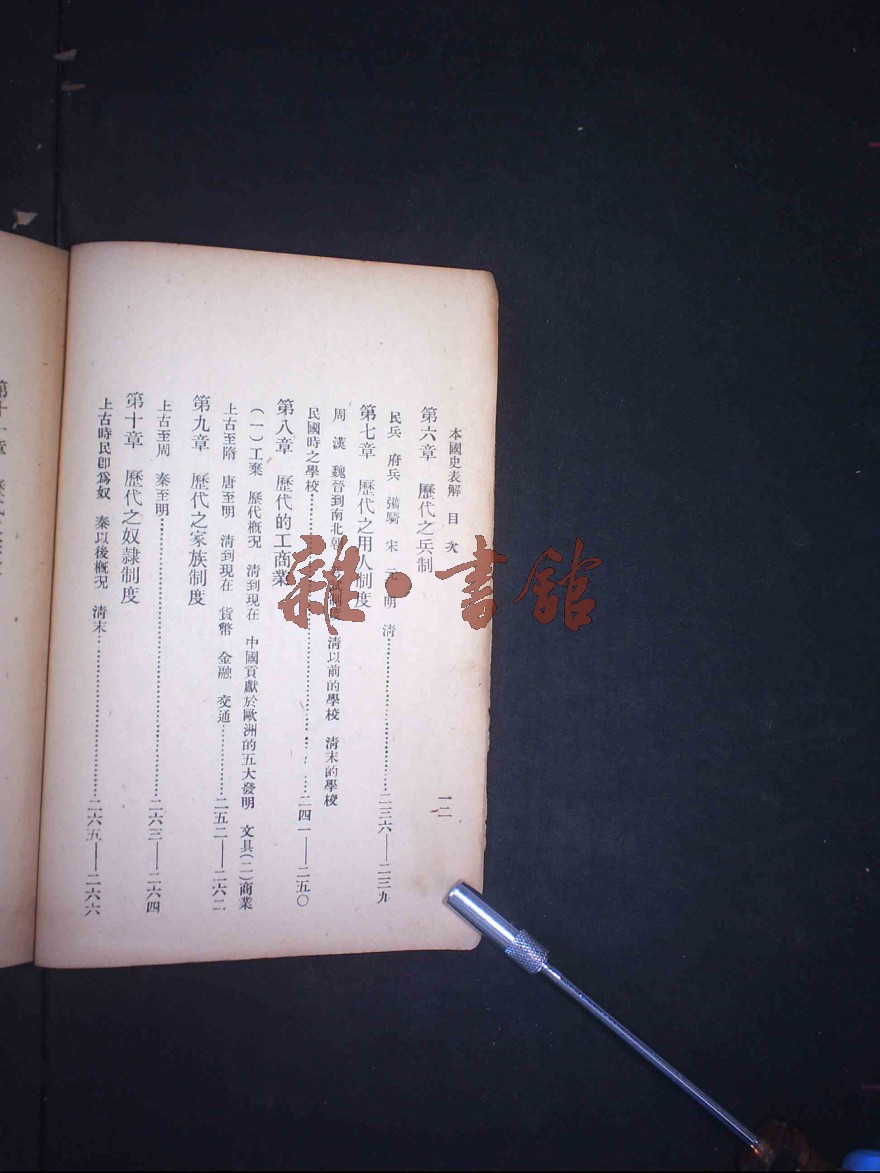 本國史表解 目次
一二
第六章 歷代之兵制
民兵 府兵 彍騎 宋 元 明 清………二三六——二三九
第七章 歷代之用人制度
周 漢 魏晉到南北朝 清以前的學校 清末的學校
民國時之學校………二四一——二五〇
第八章 歷代的工商業
(一)工業 歷代概況 清到現在 中國貢獻於歐洲的五大發明 文具(二)商業
上古至隋 唐至明 清到現在 貨幣 金融 交通………二五二——二六二
第九章 歷代之家族制度
上古至周 秦至明………二六三——二六四
第十章 歷代之奴隷制度
上古時民卽爲奴 秦以後概況 清末………二六五——二六六
第十一章
雜·書館